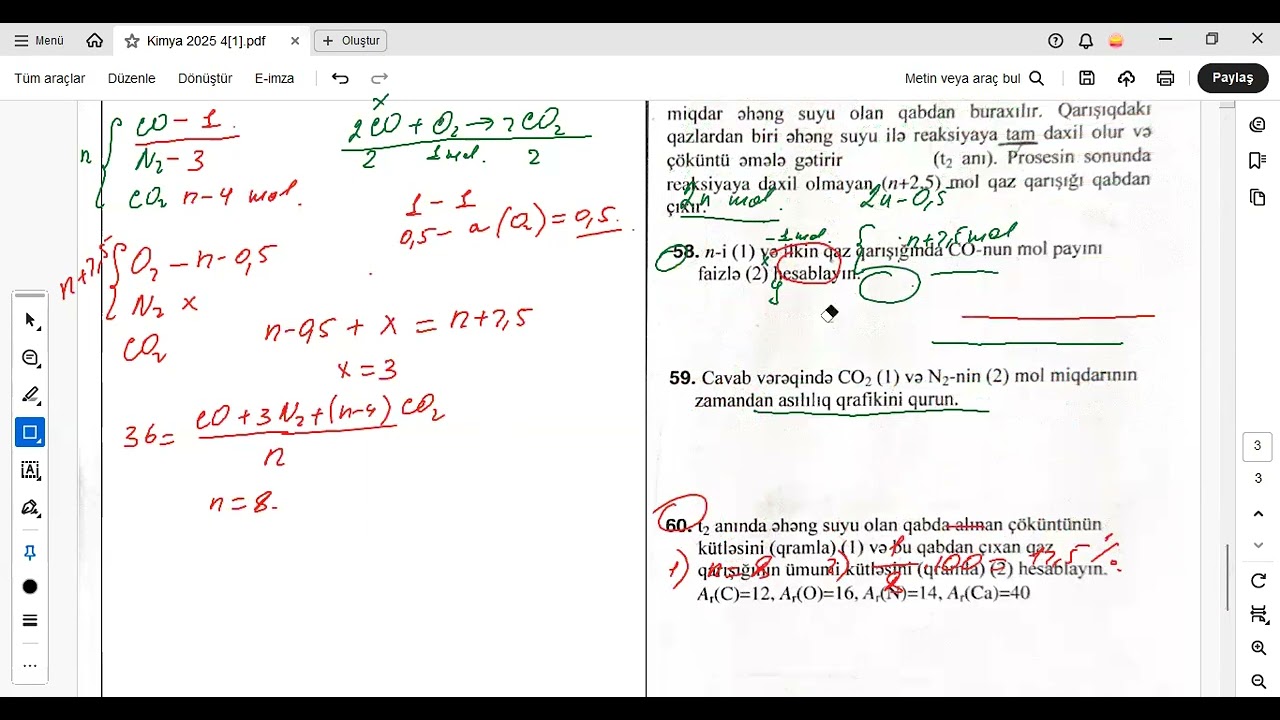 Menü
Kimya 2025 4[1].pdf
Oluştur
Tüm araçlar
Düzenle
Dönüştür
E-imza
Metin veya araç bul
Paylaş
n
CO - 1
N₂ - 3
CO₂ n-4 mol.
x
2CO + O₂ → 2CO₂
2 1 mol. 2
1 - 1
0,5 - a (O₂) = 0,5.
n+2,5
O₂ - n-0,5
N₂ x
CO₂
n-0,5 + x = n+2,5
x = 3
36 = CO + 3N₂ + (n-4) CO₂
n
n = 8.
miqdar əhəng suyu olan qabdan buraxılır. Qarışıqdakı
qazlardan biri əhəng suyu ilə reaksiyaya tam daxil olur və
çöküntü əmələ gətirir (t₂ anı). Prosesin sonunda
reaksiyaya daxil olmayan (n+2,5) mol qaz qarışığı qabdan
çıxır.
2n mol
2n-0,5
-1 mol.
n+2,5 mol
58. n-i (1) və ilkin qaz qarışığında CO-nun mol payını
faizlə (2) hesablayın.
x
y
59. Cavab vərəqində CO₂ (1) və N₂-nin (2) mol miqdarının
zamandan asılılıq qrafikini qurun.
60. t₂ anında əhəng suyu olan qabda alınan çöküntünün
kütləsini (qramla) (1) və bu qabdan çıxan qaz
qarışığının ümumi kütləsini (qramla) (2) hesablayın.
1) n = 8 2) 1/8 · 100 = 12,5 %
Aᵣ(C)=12, Aᵣ(O)=16, Aᵣ(N)=14, Aᵣ(Ca)=40
3
3